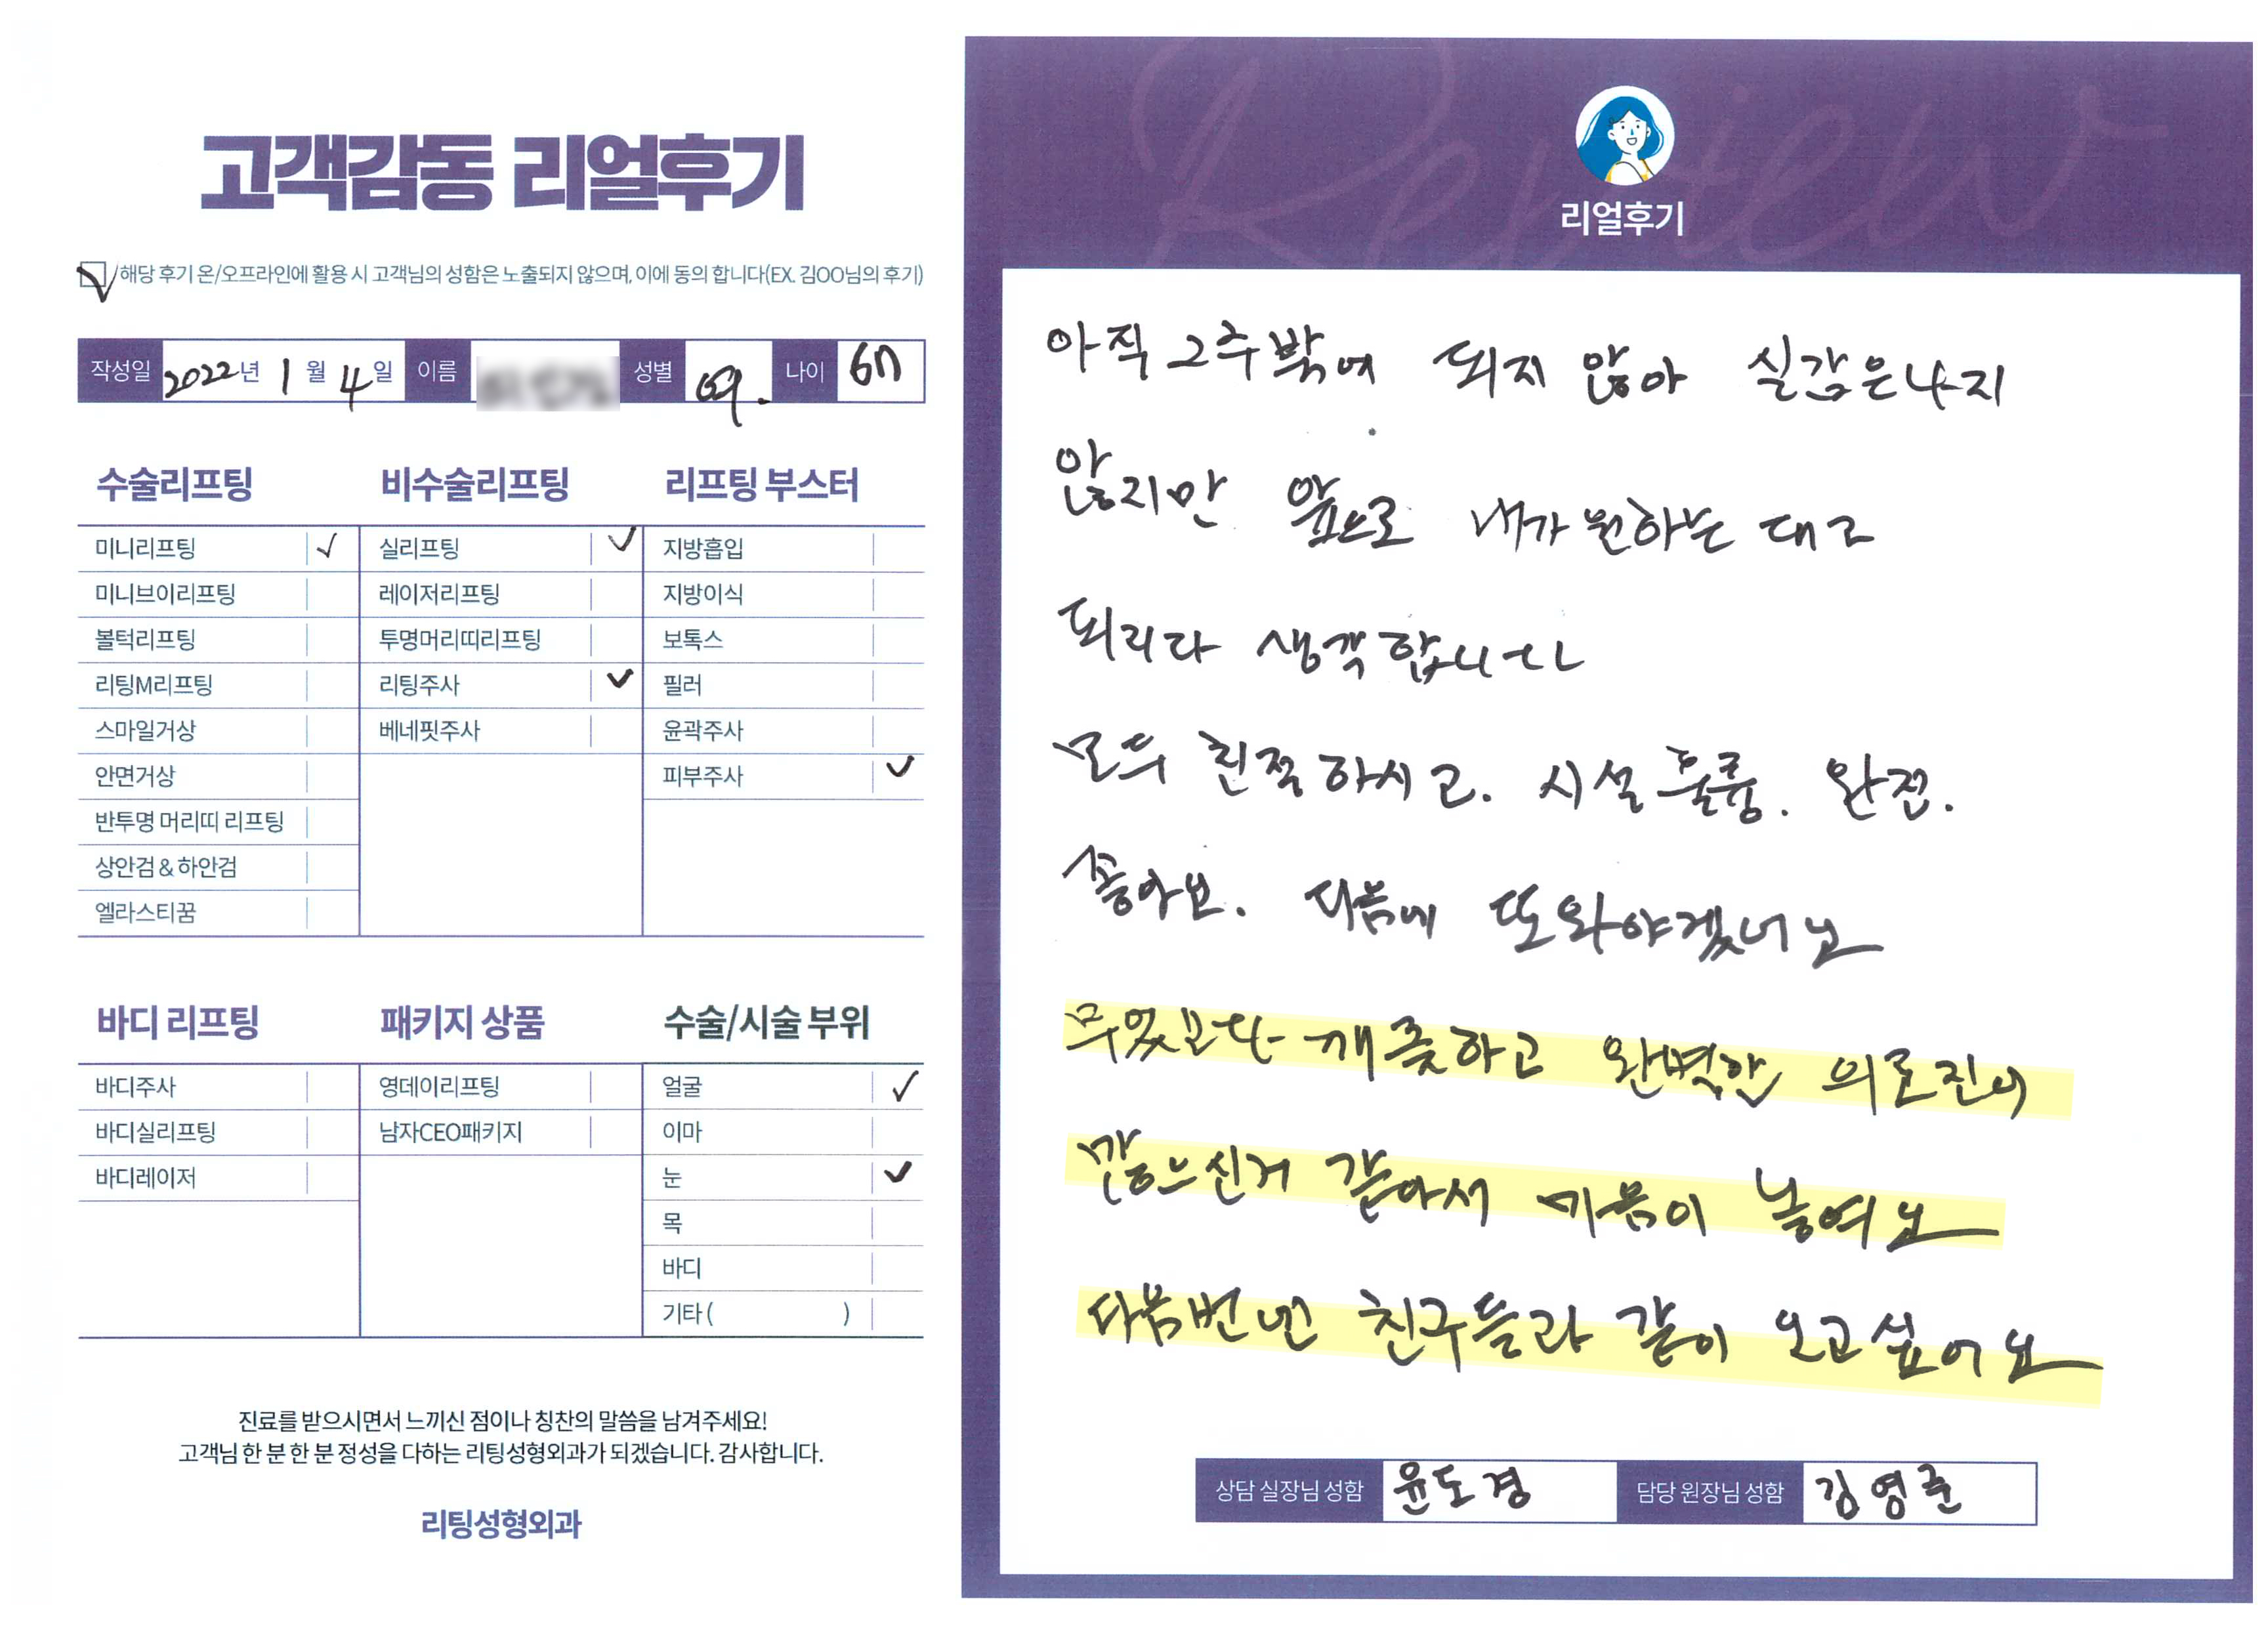 고객감동 리얼후기
해당 후기 온/오프라인에 활용 시 고객님의 성함은 노출되지 않으며, 이에 동의 합니다(EX. 김OO님의 후기)
작성일 2022년 1월 4일 이름 성별 여. 나이 67
수술리프팅
미니리프팅 ✓
미니브이리프팅
볼턱리프팅
리팅M리프팅
스마일거상
안면거상
반투명 머리띠 리프팅
상안검 & 하안검
엘라스티꿈
비수술리프팅
실리프팅 ✓
레이저리프팅
투명머리띠리프팅
리팅주사 ✓
베네핏주사
리프팅 부스터
지방흡입
지방이식
보톡스
필러
윤곽주사
피부주사 ✓
바디 리프팅
바디주사
바디실리프팅
바디레이저
패키지 상품
영데이리프팅
남자CEO패키지
수술/시술 부위
얼굴 ✓
이마
눈 ✓
목
바디
기타 ( )
진료를 받으시면서 느끼신 점이나 칭찬의 말씀을 남겨주세요!
고객님 한 분 한 분 정성을 다하는 리팅성형외과가 되겠습니다. 감사합니다.
리팅성형외과
Review
리얼후기
아직 2주밖에 되지 않아 실감은나지
않지만 앞으로 내가 원하는 대로
되리라 생각합니다
모두 친절하시고. 시설 훌륭. 완전.
좋아요. 다음에 또 와야겠네요
무엇보다 깨끗하고 완벽한 의료진이
많으신거 같아서 마음이 놓여요
다음번엔 친구들과 같이 오고싶어요
상담 실장님 성함 윤도경 담당 원장님 성함 김영준